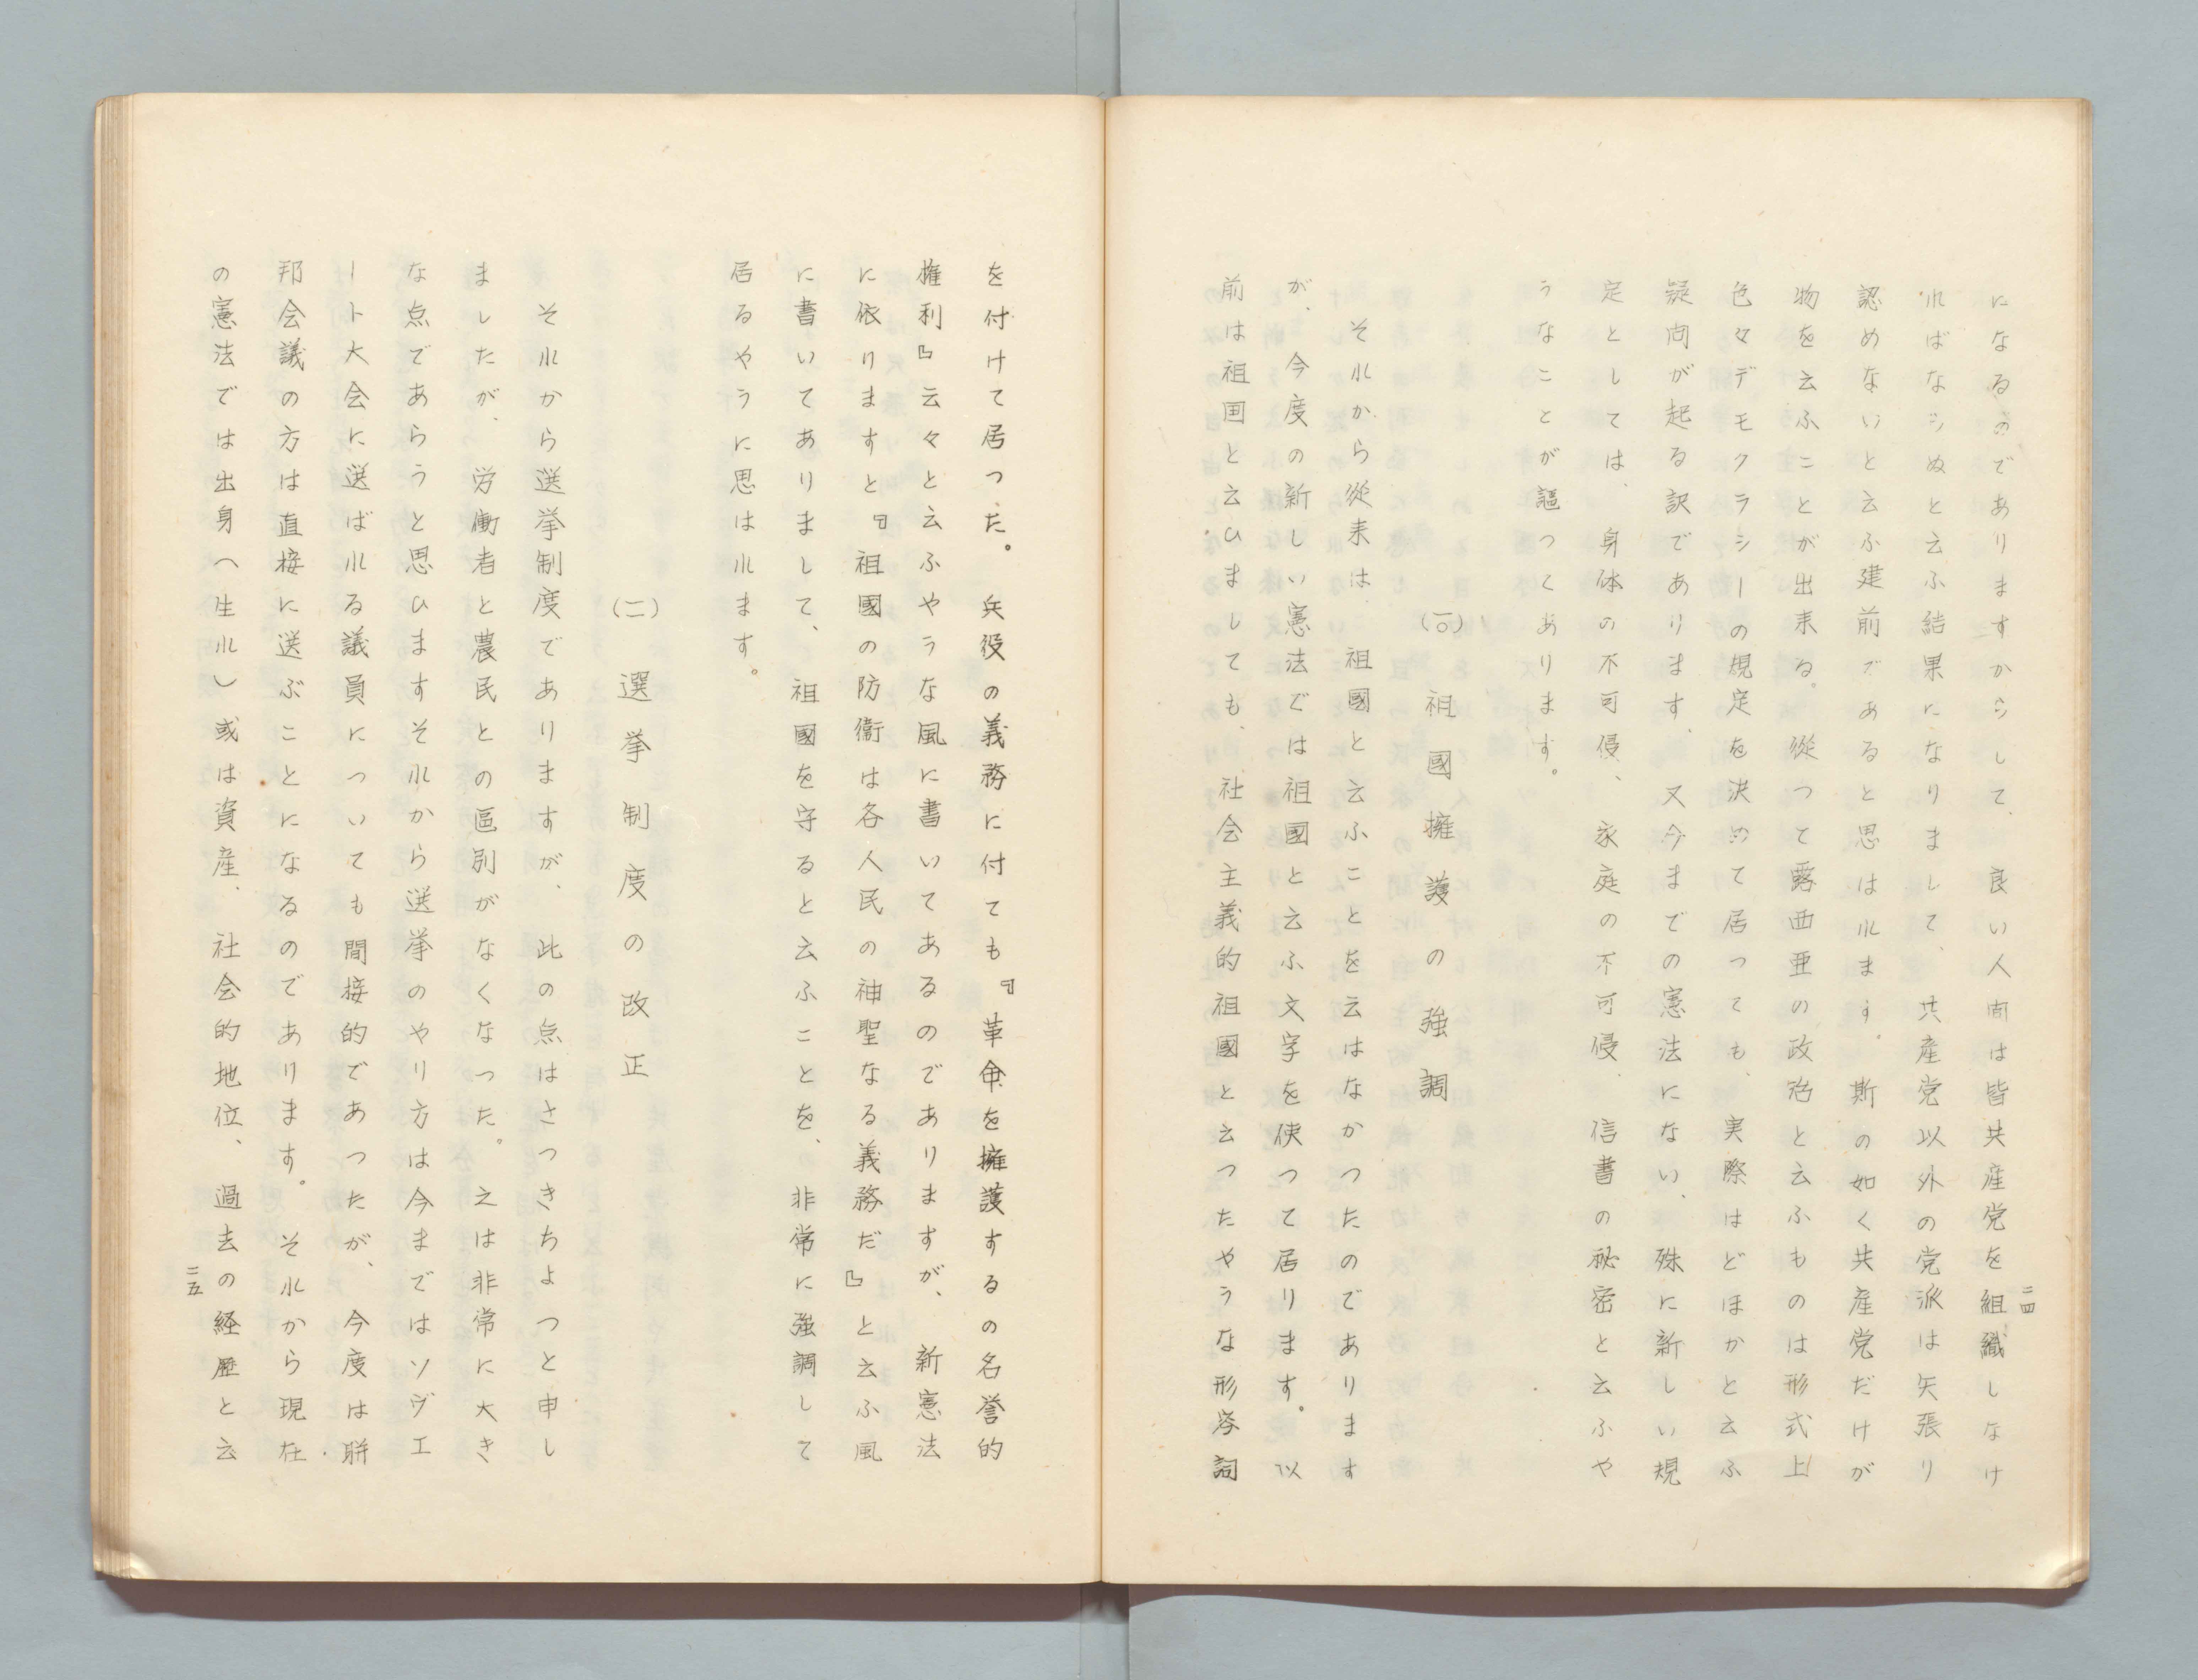 になるのでありますからして、良い人間は皆共産党を組織しなけ
ればならぬと云ふ結果になりまして、共産党以外の党派は矢張り
認めないと云ふ建前であると思はれます。斯の如く共産党だけが
物を云ふことが出来る。從つて露西亜の政治と云ふものは形式上
色々デモクラシーの規定を決めて居つても、実際はどほかと云ふ
疑问が起る訳であります、又今までの憲法にない、殊に新しい規
定としては、身体の不可侵、家庭の不可侵、信書の秘密と云ふや
うなことが謳つてあります。
(一〇)祖國擁護の強調
それから從来は、祖國と云ふことを云はなかつたのであります
が、今度の新しい憲法では祖國と云ふ文字を使つて居ります。以
前は祖国と云ひましても、社会主義的祖國と云つたやうな形容詞
二四
を付けて居つた。兵役の義務に付ても『革命を擁護するの名誉的
権利』云々と云ふやうな風に書いてあるのでありますが、新憲法
に依りますと『祖國の防衞は各人民の神聖なる義務だ』と云ふ風
に書いてありまして、祖國を守ると云ふことを、非常に強調して
居るやうに思はれます。
(二)選挙制度の改正
それから選挙制度でありますが、此の点はさつきちよつと申し
ましたが、労働者と農民との區別がなくなつた。之は非常に大き
な点であらうと思ひますそれから選挙のやり方は今まではソヴエ
ート大会に選ばれる議員についても間接的であつたが、今度は聨
邦会議の方は直接に選ぶことになるのであります。それから現在
の憲法では出身(生れ)或は資産、社会的地位、過去の経歴と云
二五